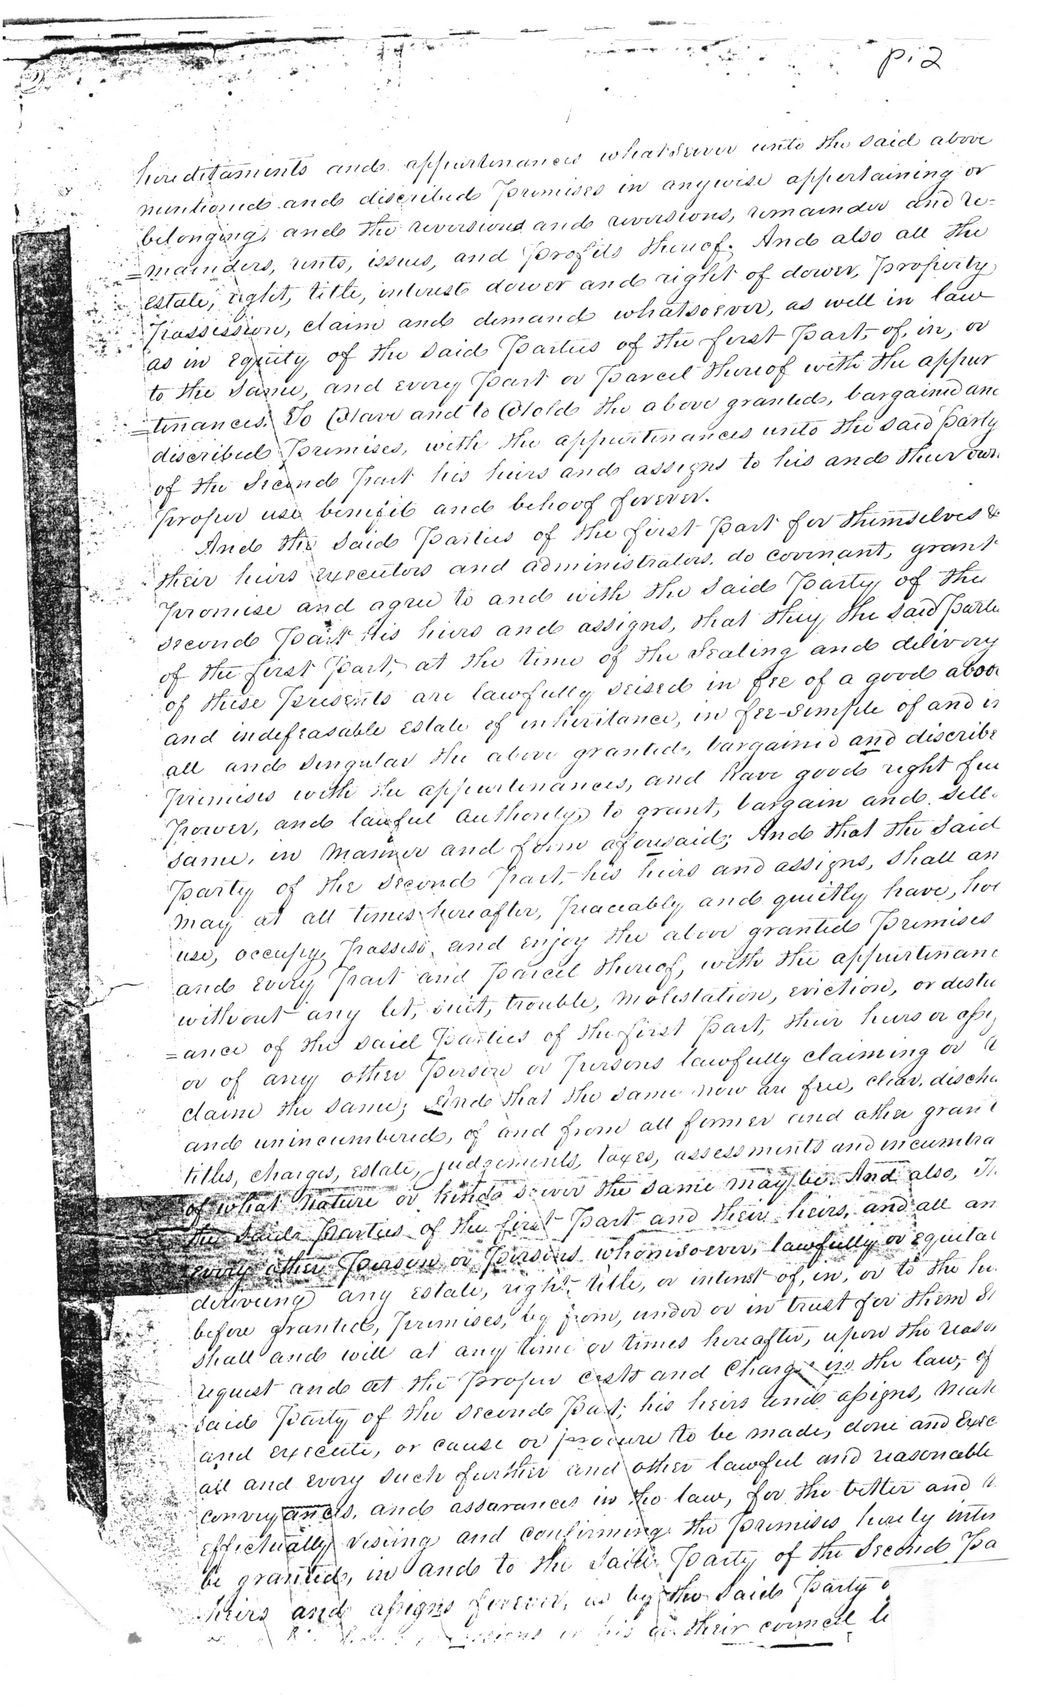 p. 2
hereditaments and appurtenances whatsoever unto the said above
mentioned and discribed Premises in anywise appertaining or
belonging, and the reversion and reversions, remainder and re=
=mainders, rents, issues, and Profits thereof. And also all the
estate, right, title, interest dower and right of dower, Property
Possession, claim and demand whatsoever, as well in law
as in Equity of the said Parties of the first Part, of, in, or
to the same, and every Part or Parcel thereof with the appur
=tenances. To Have and to Hold the above granted, bargained and
discribed Premises, with the appurtenances unto the said Party
of the Second Part his heirs and assigns to his and their own
proper use benifit and behoof forever.
And the said Parties of the first Part for themselves &
their heirs executors and administrators do covenant, grant
Promise and agree to and with the said Party of the
second Part his heirs and assigns, that they the said Parti
of the first Part, at the time of the Sealing and delivery
of these Presents are lawfully seised in fee of a good abso
and indefeasable Estate of inheritance, in fee-simple of and in
all and singular the above granted, bargained and discribe
Premises with the appurtenances, and have good right full
Power, and lawful authority to grant, bargain and sell
same, in manner and form aforesaid; And that the said
Party of the second Part, his heirs and assigns, shall an
may at all times hereafter, Peaceably and quietly have, hol
use, occupy, Possess, and enjoy the above granted Premises
and every Part and Parcel thereof, with the appurtenanc
without any let, suit, trouble, molestation, eviction, or distu
=ance of the said Parties of the first Part, their heirs or assig
or of any other Person or Persons lawfully claiming or
claim the same; And that the same now are free, clear, discha
and unincumbered, of and from all former and other grant
titles, charges, estate, judgements, taxes, assessments and incumbra
of what nature or kind soever the same may be. And also, Th
the said Parties of the first Part and their heirs, and all an
every other Person or Persons whomsoever, lawfully or equitab
deriveing any estate, right, title, or interest of, in, or to the he
before granted, Premises, by from, under or in trust for them
shall and will at any time or times hereafter, upon the reason
request and at the Proper costs and Charges in the law, of
said Party of the second Part, his heirs and assigns, mak
and execute, or cause or procure to be made, done and Exec
all and every such further and other lawful and reasonable
conveyances, and assurances in the law, for the better and
effectually vesting and confirming the Premises hereby inten
be granted, in and to the said Party of the Second Pa
heirs and assigns forever, as by the said Party o
his or their council le